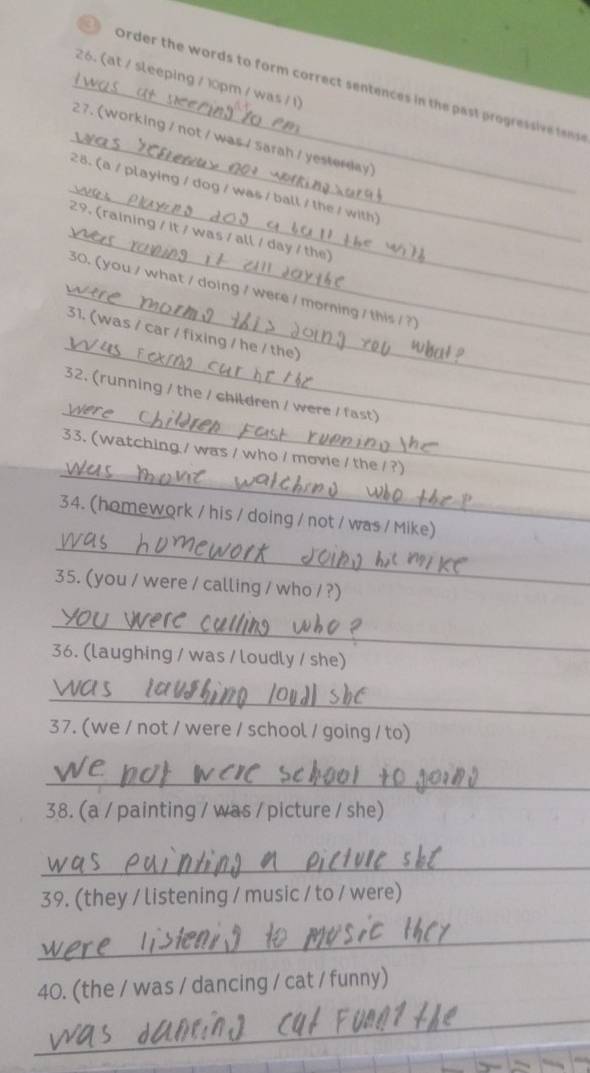 3 Order the words to form correct sentences in the past progressive tense
26. (at / sleeping / 10pm / was / I)
I was at sleeping 10 pm
27. (working / not / was / sarah / yesterday)
was yesterday not working sarah
28. (a / playing / dog / was / ball / the / with)
was playing dog a ball the with
29. (raining / it / was / all / day / the)
was raning it all day the
30. (you / what / doing / were / morning / this / ?)
were morning this doing you what?
31. (was / car / fixing / he / the)
was Fexing car he the
32. (running / the / children / were / fast)
were children Fast running the
33. (watching / was / who / movie / the / ?)
was movie watching who the?
34. (homework / his / doing / not / was / Mike)
was homework doing his mike
35. (you / were / calling / who / ?)
you were calling who?
36. (laughing / was / loudly / she)
was laughing loudl she
37. (we / not / were / school / going / to)
we not were school to going
38. (a / painting / was / picture / she)
was painting a picture she
39. (they / listening / music / to / were)
were listening to music they
40. (the / was / dancing / cat / funny)
was dancing cat the